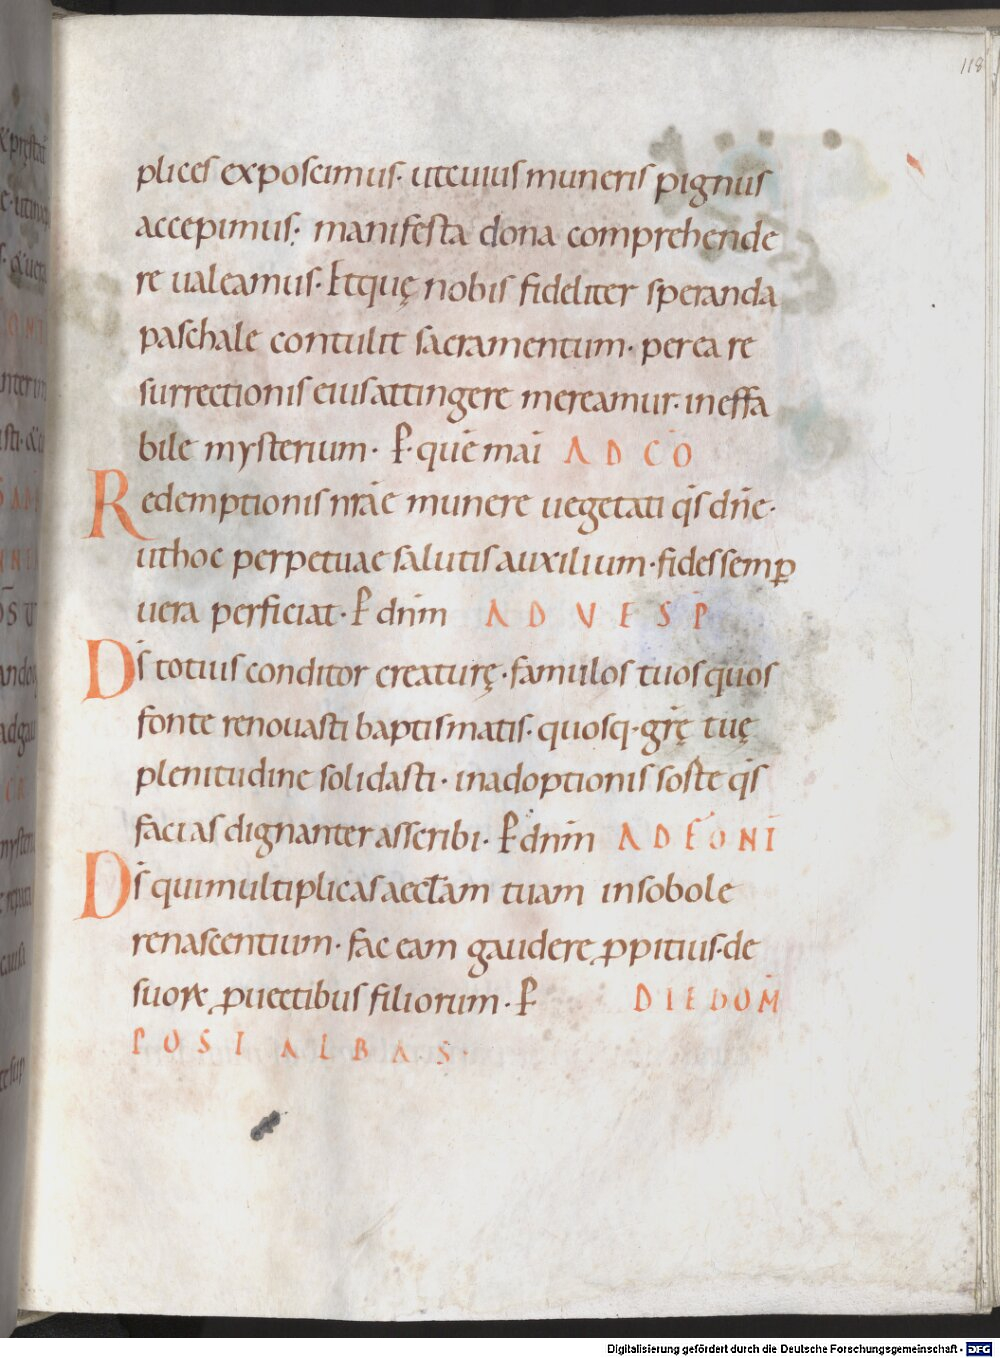 118
plices exposcimus· utcuius muneris pignus
accepimus· manifesta dona comprehende
re ualeamus· Etquę nobis fideliter speranda
paschale contulit sacramentum· per ea re
surrectionis eius attingere mereamur· ineffa
bile mysterium· P· quē mai AD CŌ
Redemptionis nr̄ae munere uegetati qs̄ dn̄e·
ut hoc perpetuae salutis auxilium· fides semp̄
uera perficiat· P dn̄m AD VESP̄
Ds̄ totius conditor creaturę· famulos tuos quos
fonte renouasti baptismatis· quosq· gr̄ę tuę
plenitudine solidasti· in adoptionis sorte qs̄
facias dignanter asscribi· P dn̄m AD FONT
Ds̄ qui multiplicas aeccl̄am tuam in sobole
renascentium· fac eam gaudere ꝓpitius· de
suoꝝ ꝓuectibus filiorum· P DIE DOM̄
POST ALBAS·
Digitalisierung gefördert durch die Deutsche Forschungsgemeinschaft - DFG